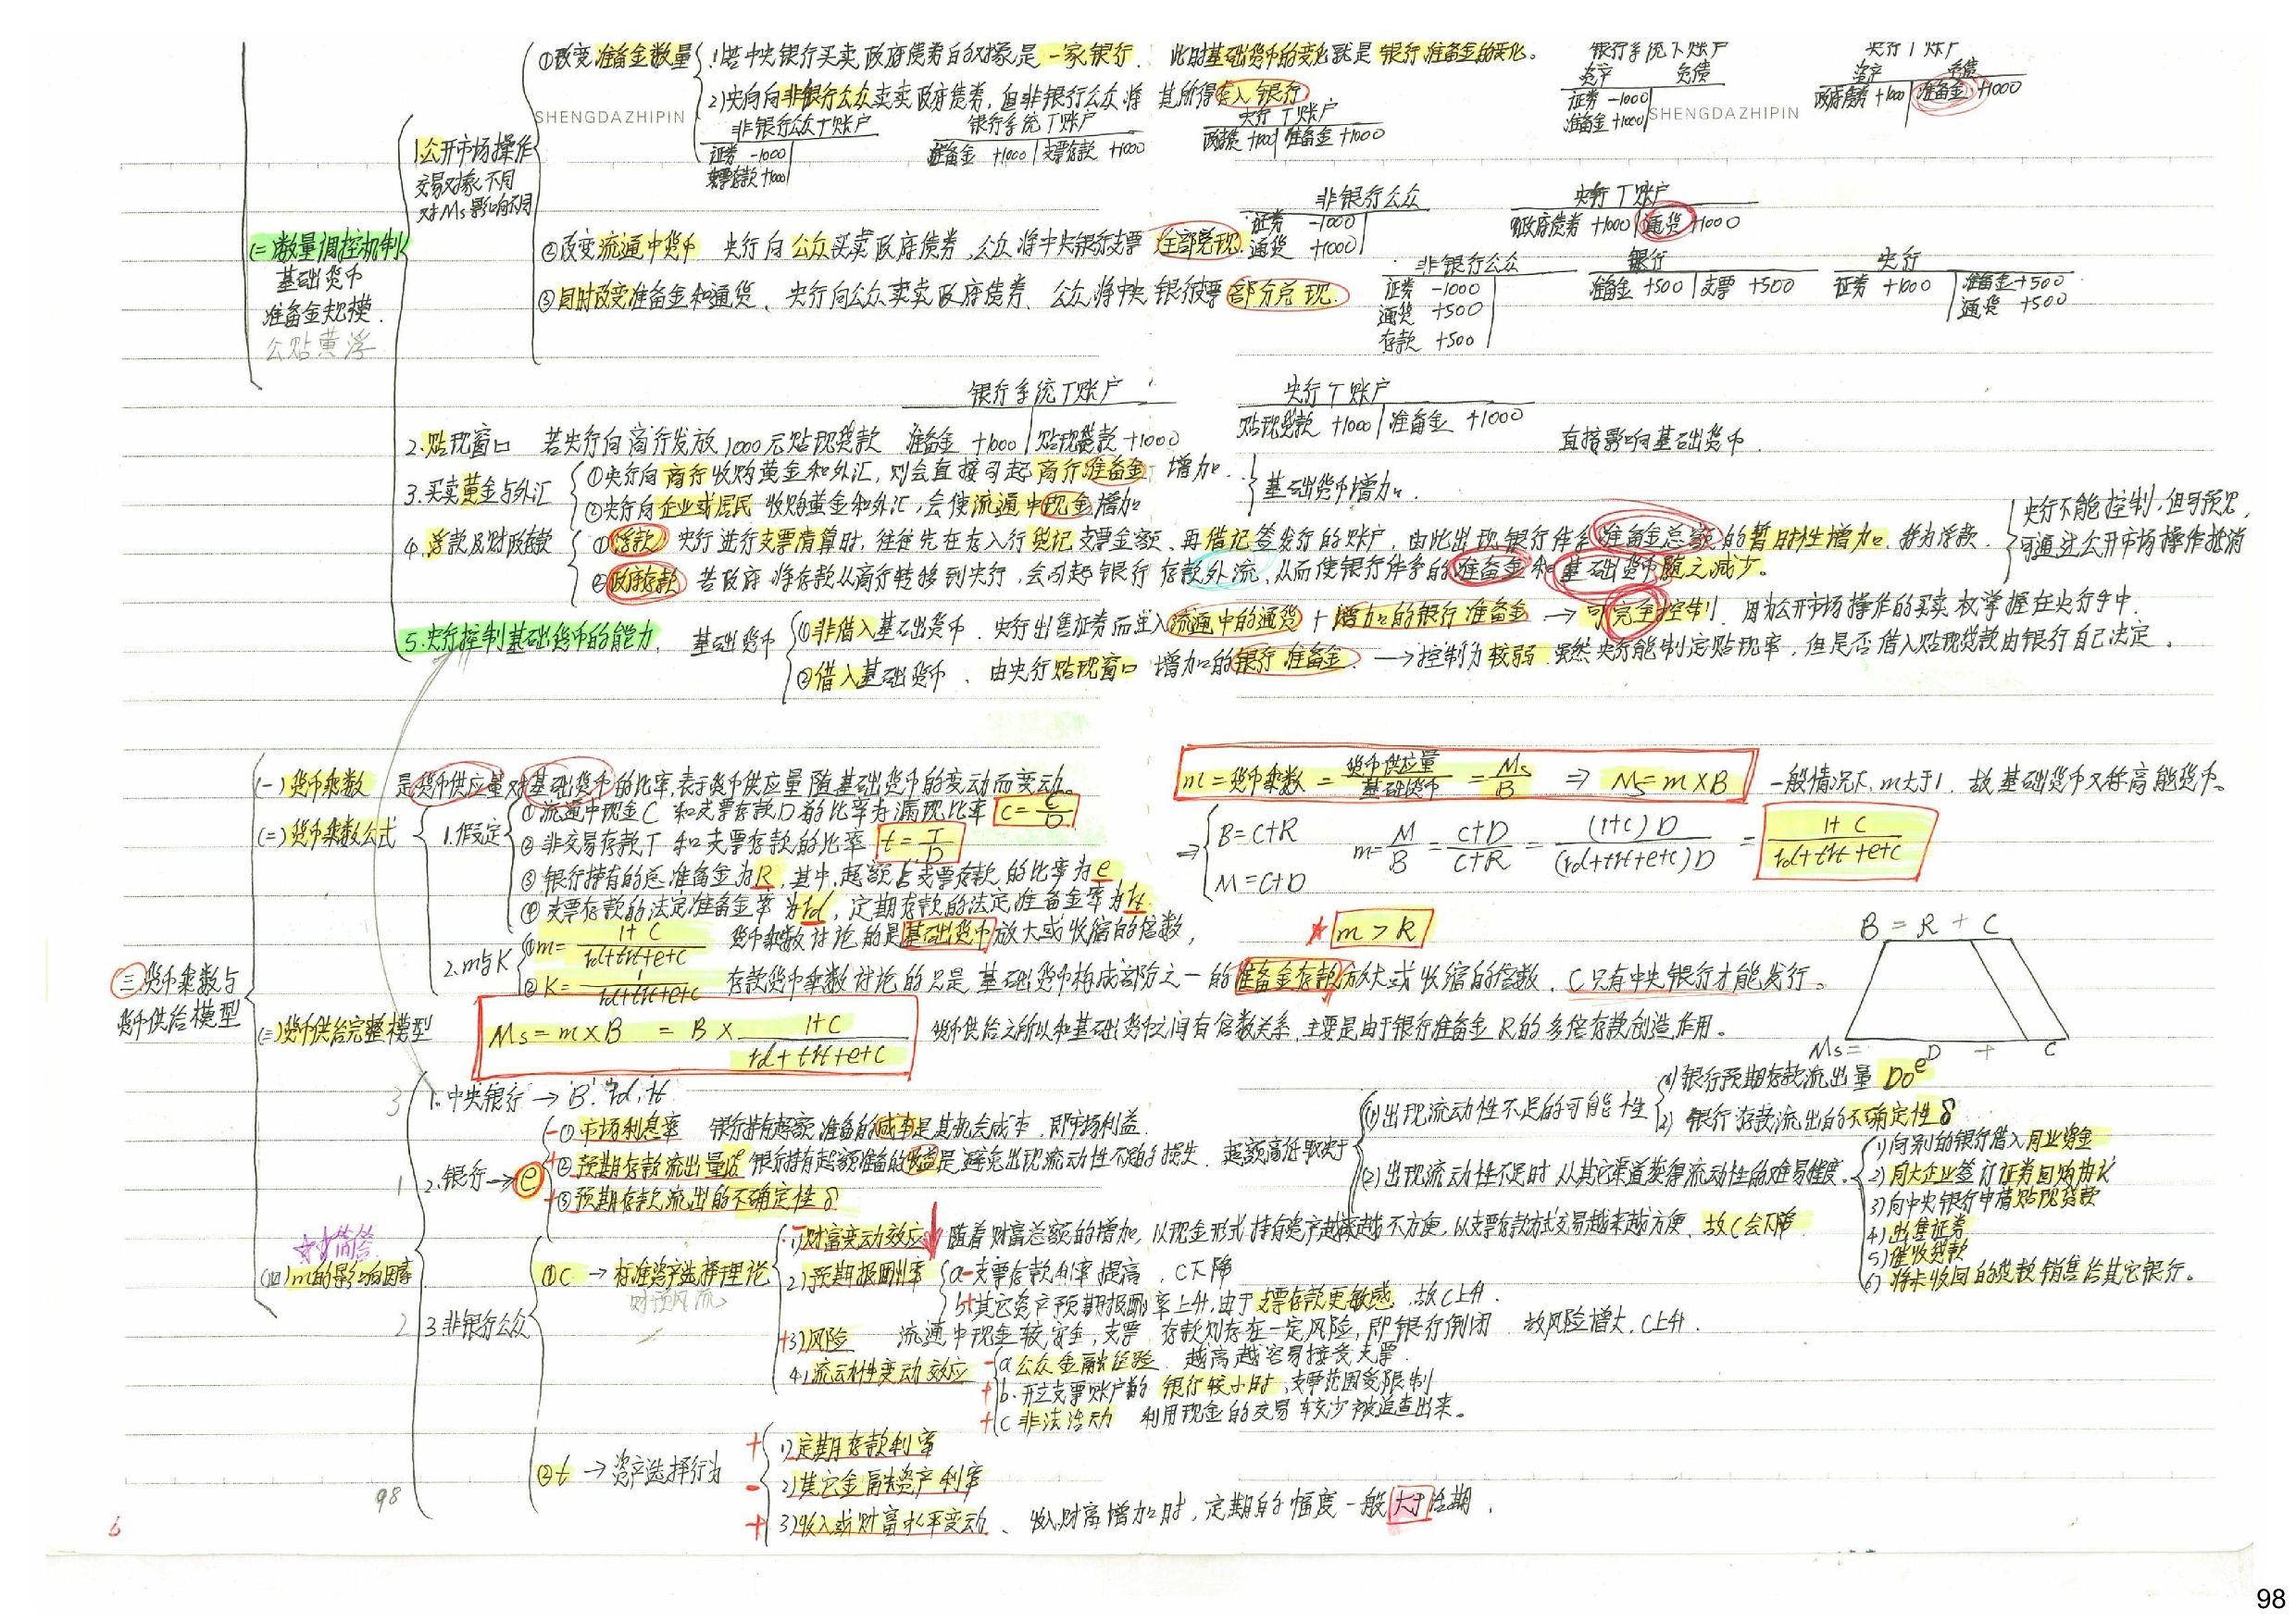 ①改变准备金数量 1)若中央银行买卖政府债券的对象是一家银行. 此时基础货币的变化就是银行准备金的变化。
银行系统T账户
资产 负债
证券 -1000
准备金 +1000
央行T账户
资产 负债
政府债券 +1000 准备金 +1000
2)央行向非银行公众买卖政府债券,但非银行公众将其所得存入银行
SHENGDAZHIPIN
SHENGDAZHIPIN
非银行公众T账户
证券 -1000
支票存款 +1000
银行系统T账户
准备金 +1000 支票存款 +1000
央行T账户
政府债 +1000 准备金 +1000
1.公开市场操作
交易对象不同
对Ms影响不同
(二)数量调控机制
基础货币
准备金规模.
公贴黄浮
②改变流通中货币 央行向公众买卖政府债券,公众将中央银行支票全部兑现.
非银行公众
证券 -1000
通货 +1000
央行T账户
政府债券 +1000 通货 +1000
③同时改变准备金和通货、央行向公众买卖政府债券、公众将中央银行支票部分兑现.
非银行公众
证券 -1000
通货 +500
存款 +500
银行
准备金 +500 支票 +500
央行
证券 +1000 准备金 +500
通货 +500
银行系统T账户
央行T账户
2.贴现窗口 若央行向商行发放1000元贴现贷款 准备金 +1000 贴现贷款 +1000
贴现贷款 +1000 准备金 +1000
直接影响基础货币.
3.买卖黄金与外汇 ①央行向商行收购黄金和外汇,则会直接引起商行准备金增加.
②央行向企业或居民收购黄金和外汇,会使流通中现金增加
基础货币增加.
4.浮款及财政存款 ①浮款 央行进行支票清算时,往往先在存入行贷记支票金额、再借记签发行的账户,由此出现银行体系准备金总额的暂时性增加,称为浮款.
②政府存款 若政府将存款从商行转移到央行,会引起银行存款外流,从而使银行体系的准备金和基础货币随之减少。
央行不能控制,但可预见,
可通过公开市场操作抵消
5.央行控制基础货币的能力. 基础货币 ①非借入基础货币.央行出售证券而注入流通中的通货+增加的银行准备金→可完全控制.因为公开市场操作的买卖权掌握在央行手中.
②借入基础货币、由央行贴现窗口增加的银行准备金.→控制力较弱.虽然央行能制定贴现率,但是否借入贴现贷款由银行自己决定.
三.货币乘数与
货币供给模型
(一)货币乘数 是货币供应量对基础货币的比率,表示货币供应量随基础货币的变动而变动。
m=货币乘数=货币供应量/基础货币=Ms/B ⇒ Ms=m×B 一般情况下,m大于1.故基础货币又称高能货币。
(二)货币乘数公式 1.假定 ①流通中现金C和支票存款D的比率为漏现比率 c=C/D
②非交易存款T和支票存款的比率 t=T/D
③银行持有的总准备金为R,其中,超额占支票存款的比率为e
④支票存款的法定准备金率为rd,定期存款的法定准备金率为rt.
⇒ B=C+R
M=C+D
m=M/B=(C+D)/(C+R)=(1+c)D/(rd+t·rt+e+c)D=(1+c)/(rd+t·rt+e+c)
2.m与K ①m=(1+c)/(rd+t·rt+e+c) 货币乘数讨论的是基础货币放大或收缩的倍数,
★ m>K
②K=1/(rd+t·rt+e+c) 存款货币乘数讨论的只是基础货币构成部分之一的准备金存款放大或收缩的倍数.C只有中央银行才能发行。
B=R+C
Ms= D + C
(三)货币供给完整模型 Ms=m×B =B×(1+c)/(rd+t·rt+e+c) 货币供给之所以和基础货币之间有倍数关系,主要是由于银行准备金R的多倍存款创造作用。
☆☆简答
(四)m的影响因素
3 1.中央银行→B.rd.rt
1 2.银行→e
-①市场利息率 银行持有超额准备的成本是其机会成本.即市场利益.
+②预期存款流出量 银行持有超额准备的收益是避免出现流动性不足的损失.超额高低取决于
+③预期存款流出的不确定性δ
(1)出现流动性不足的可能性
1)银行预期存款流出量 Do^e
2)银行存款流出的不确定性δ
(2)出现流动性不足时从其它渠道获得流动性的难易程度.
1)向别的银行借入同业资金
2)同大企业签订证券回购协议
3)向中央银行申请贴现贷款
4)出售证券
5)催收贷款
6)将未收回的贷款销售给其它银行。
2 3.非银行公众
①C→标准资产选择理论
财预风流
-1)财富变动效应↓ 随着财富总额的增加,以现金形式持有资产越来越不方便,以支票存款方式交易越来越方便.故C会下降
2)预期报酬率 a-支票存款利率提高,C下降
b+其它资产预期报酬率上升,由于支票存款更敏感.故C上升.
+3)风险 流通中现金较安全,支票存款则存在一定风险,即银行倒闭 故风险增大,C上升.
4)流动性变动效应 -a公众金融经验.越高越容易接受支票.
+b.开立支票账户的银行较小时,支票范围受限制
+c非法活动 利用现金的交易较少被追查出来。
②t→资产选择行为
+1)定期存款利率
-2)其它金融资产利率
+3)收入或财富水平变动、收入财富增加时,定期的幅度一般大于活期.
98
6
98